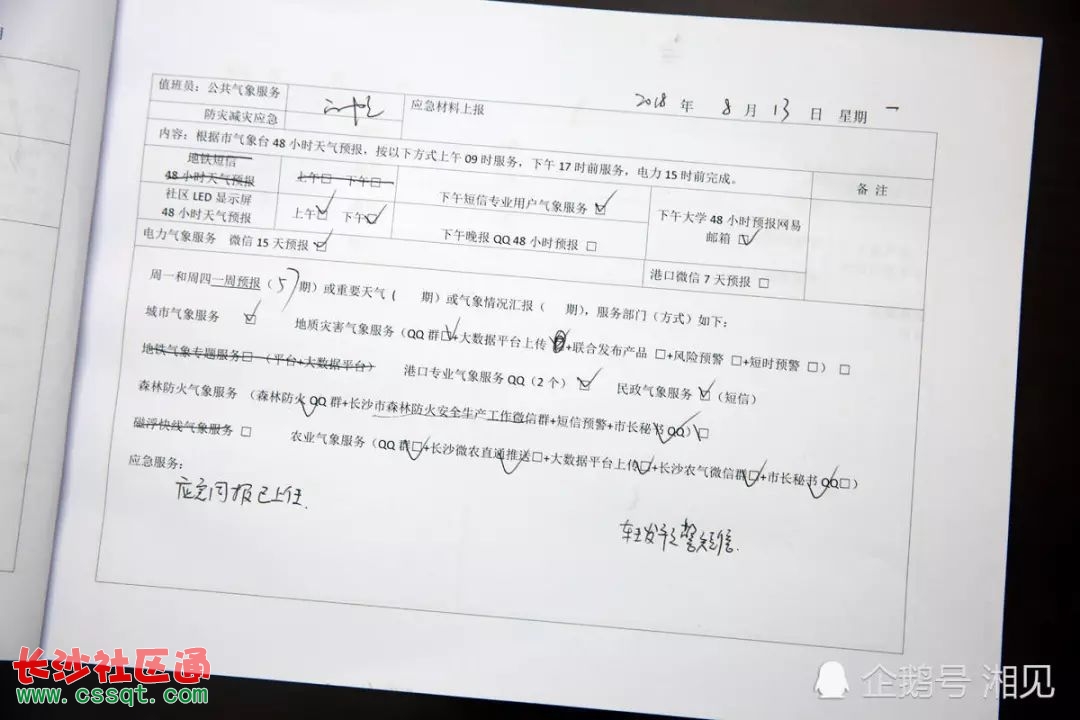 值班员：公共气象服务
防灾减灾应急
应急材料上报
2018 年 8 月 13 日 星期 一
内容：根据市气象台 48 小时天气预报，按以下方式上午 09 时服务，下午 17 时前服务，电力 15 时前完成。
备 注
地铁短信
48 小时天气预报
上午□ 下午□
社区 LED 显示屏
48 小时天气预报
上午☑ 下午☑
下午短信专业用户气象服务 ☑
下午大学 48 小时预报网易
邮箱 ☑
电力气象服务 微信 15 天预报 ☑
下午晚报 QQ 48 小时预报 □
港口微信 7 天预报 □
周一和周四一周预报（57期）或重要天气（ 期）或气象情况汇报（ 期），服务部门（方式）如下：
城市气象服务 ☑
地质灾害气象服务（QQ 群☑+大数据平台上传 +联合发布产品 □+风险预警 □+短时预警 □） □
地铁气象专题服务□ （平台+大数据平台）
港口专业气象服务 QQ（2 个） ☑
民政气象服务 ☑（短信）
森林防火气象服务 （森林防火 QQ 群+长沙市森林防火安全生产工作微信群+短信预警+市长秘书 QQ）□
磁浮快线气象服务 □
农业气象服务（QQ 群☑+长沙微农直通推送☑+大数据平台上传☑+长沙农气微信群☑+市长秘书 QQ☑）
应急服务：
应急周报已上传.
转发预警短信.
长沙社区通
www.cssqt.com
企鹅号 湘见